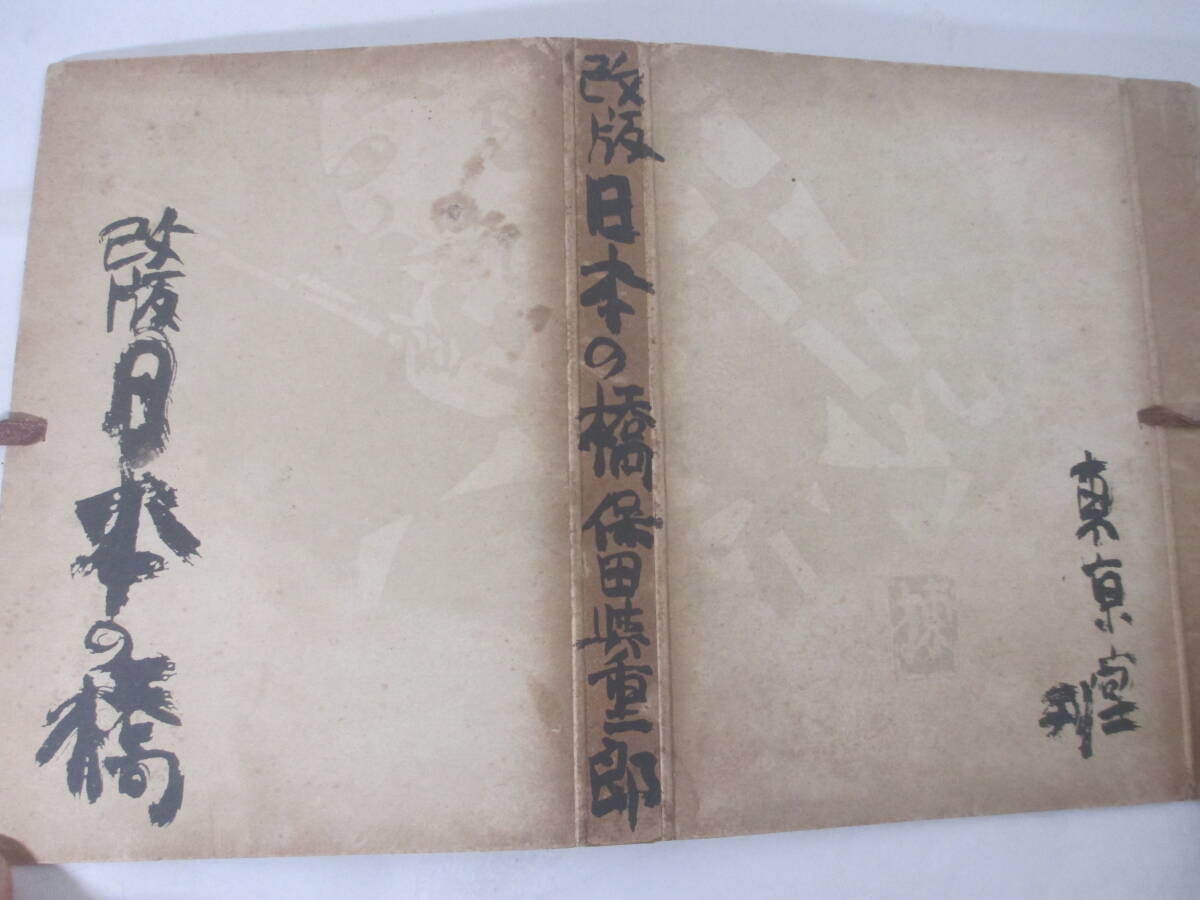 改版 日本の橋
改版 日本の橋 保田與重郎
東京堂
刊